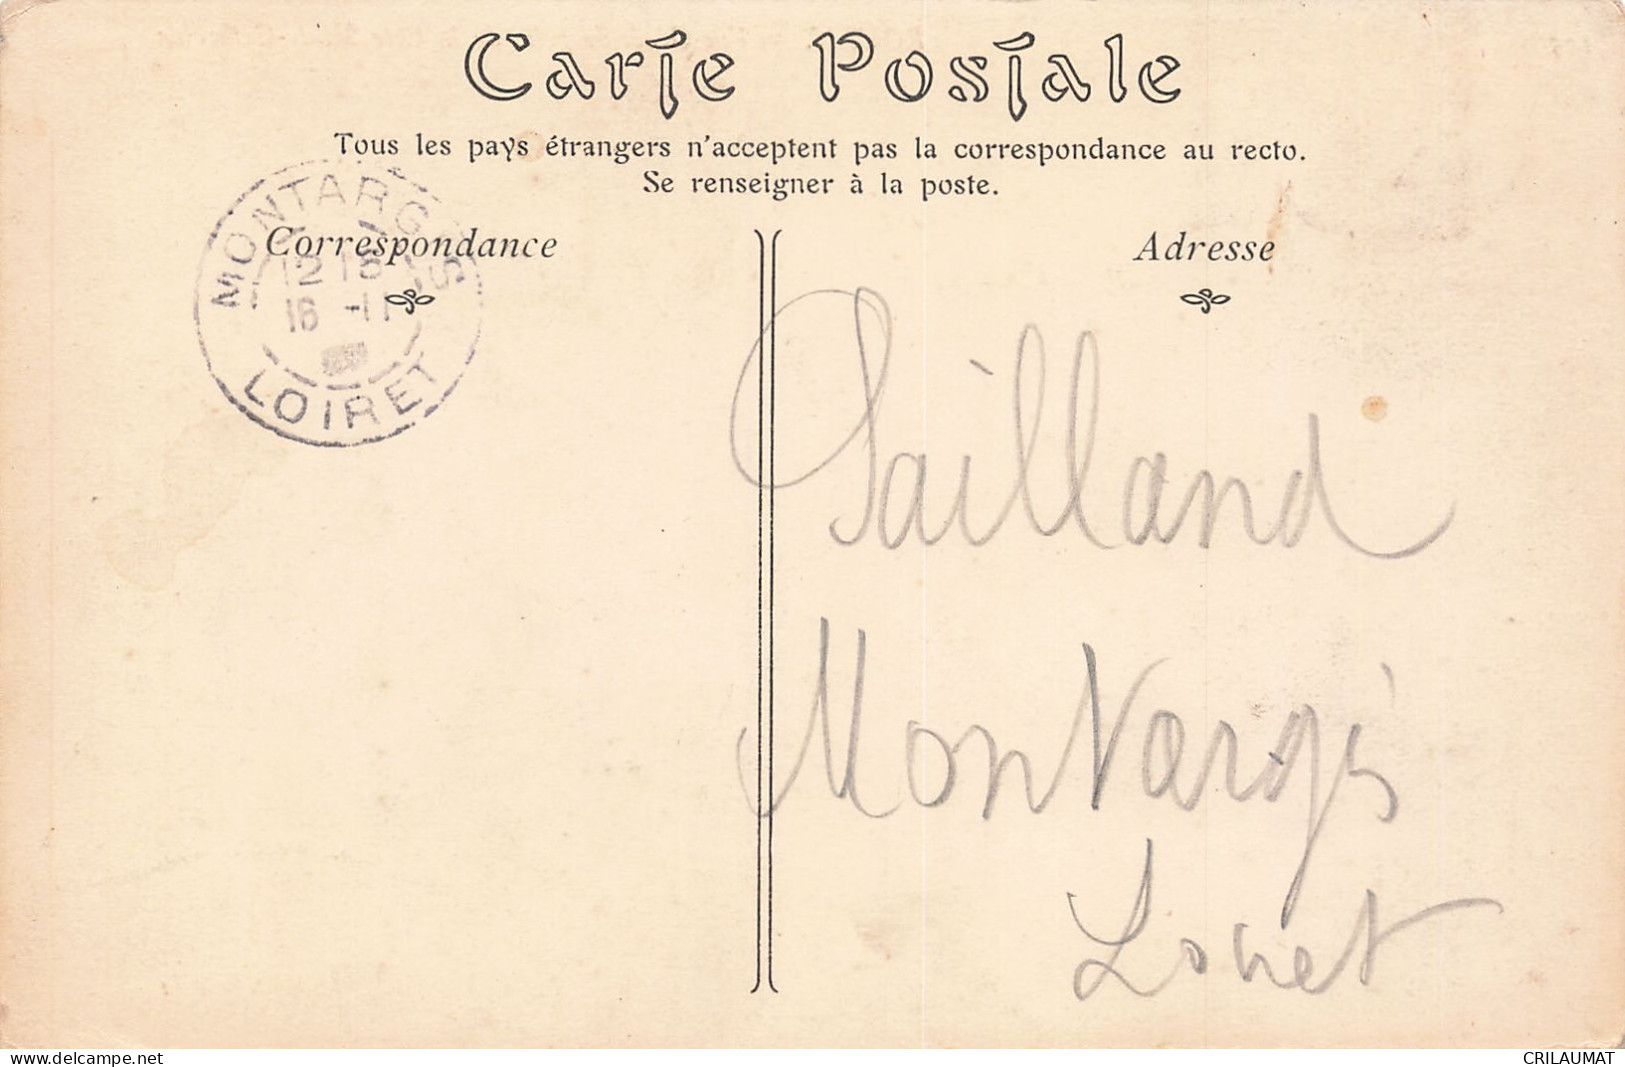 Carte Postale
Tous les pays étrangers n'acceptent pas la correspondance au recto.
Se renseigner à la poste.
Correspondance
Adresse
MONTARGIS
12 15
16 -11
LOIRET
Sailland
Montargis
Loiret
www.delcampe.net
CRILAUMAT